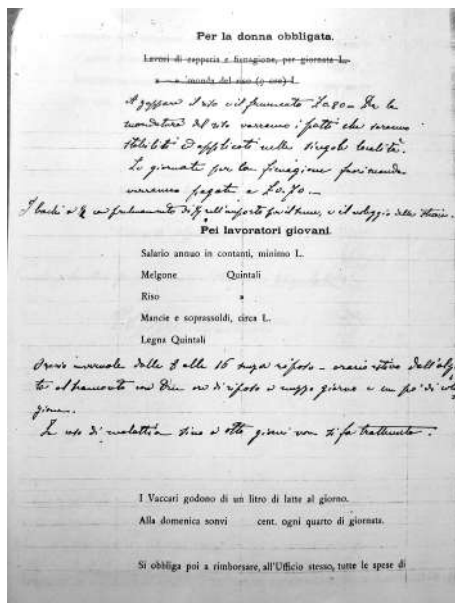 Per la donna obbligata.
Lavori di zapperia e fienagione, per giornata L.
» » monda del riso (9 ore) L.
A zappare il riso e il frumento L 0.80 – Per la
mondatura del riso varranno i patti che saranno
stabiliti ed applicati nelle singole località.
Le giornate per la fienagione fuori monda
verranno pagate a L 0.70 –
I bachi a ½ con prelevamento di sull'importo per il seme, e il noleggio delle stuoie.
Pei lavoratori giovani.
Salario annuo in contanti, minimo L.
Melgone Quintali
Riso »
Mancie e soprassoldi, circa L.
Legna Quintali
Orario invernale dalle 8 alle 16 senza riposo – orario estivo dall'alba
al tramonto con due ore di riposo a mezzo giorno e un po' di
In caso di malattia sino a otto giorni non si fa trattenuta.
I Vaccari godono di un litro di latte al giorno.
Alla domenica sonvi cent. ogni quarto di giornata.
Si obbliga poi a rimborsare, all'Ufficio stesso, tutte le spese di